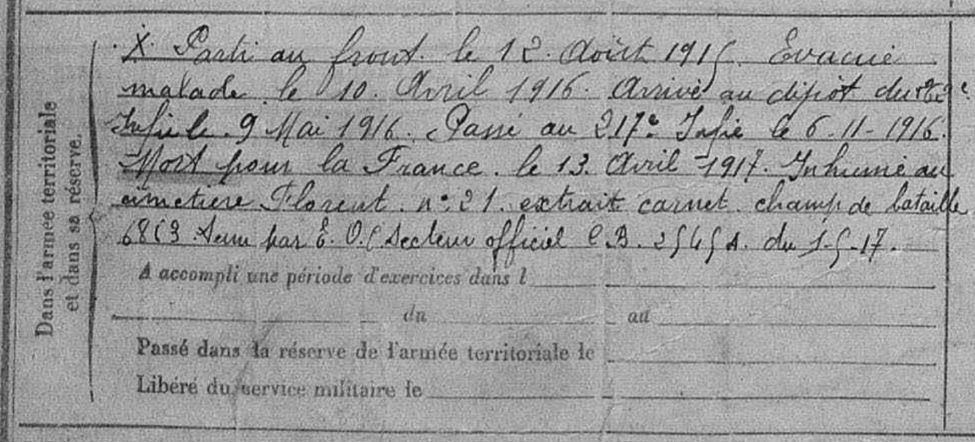 Dans l'armée territoriale
et dans sa réserve.
X Parti au front. le 12. Août 1915. Evacué
malade. le 10. Avril 1916. Arrivé au dépôt du
Infie le. 9 Mai 1916. Passé au 217e Infie le 6-11-1916.
Mort pour la France. le 13. Avril 1917. Inhumé au
cimetière Florent. n° 21. extrait carnet. champ de bataille
6863. tenu par E. O. C secteur officiel C.B. 2545 A. du 1-5-17.
A accompli une période d'exercices dans l
du au
Passé dans la réserve de l'armée territoriale le
Libéré du service militaire le